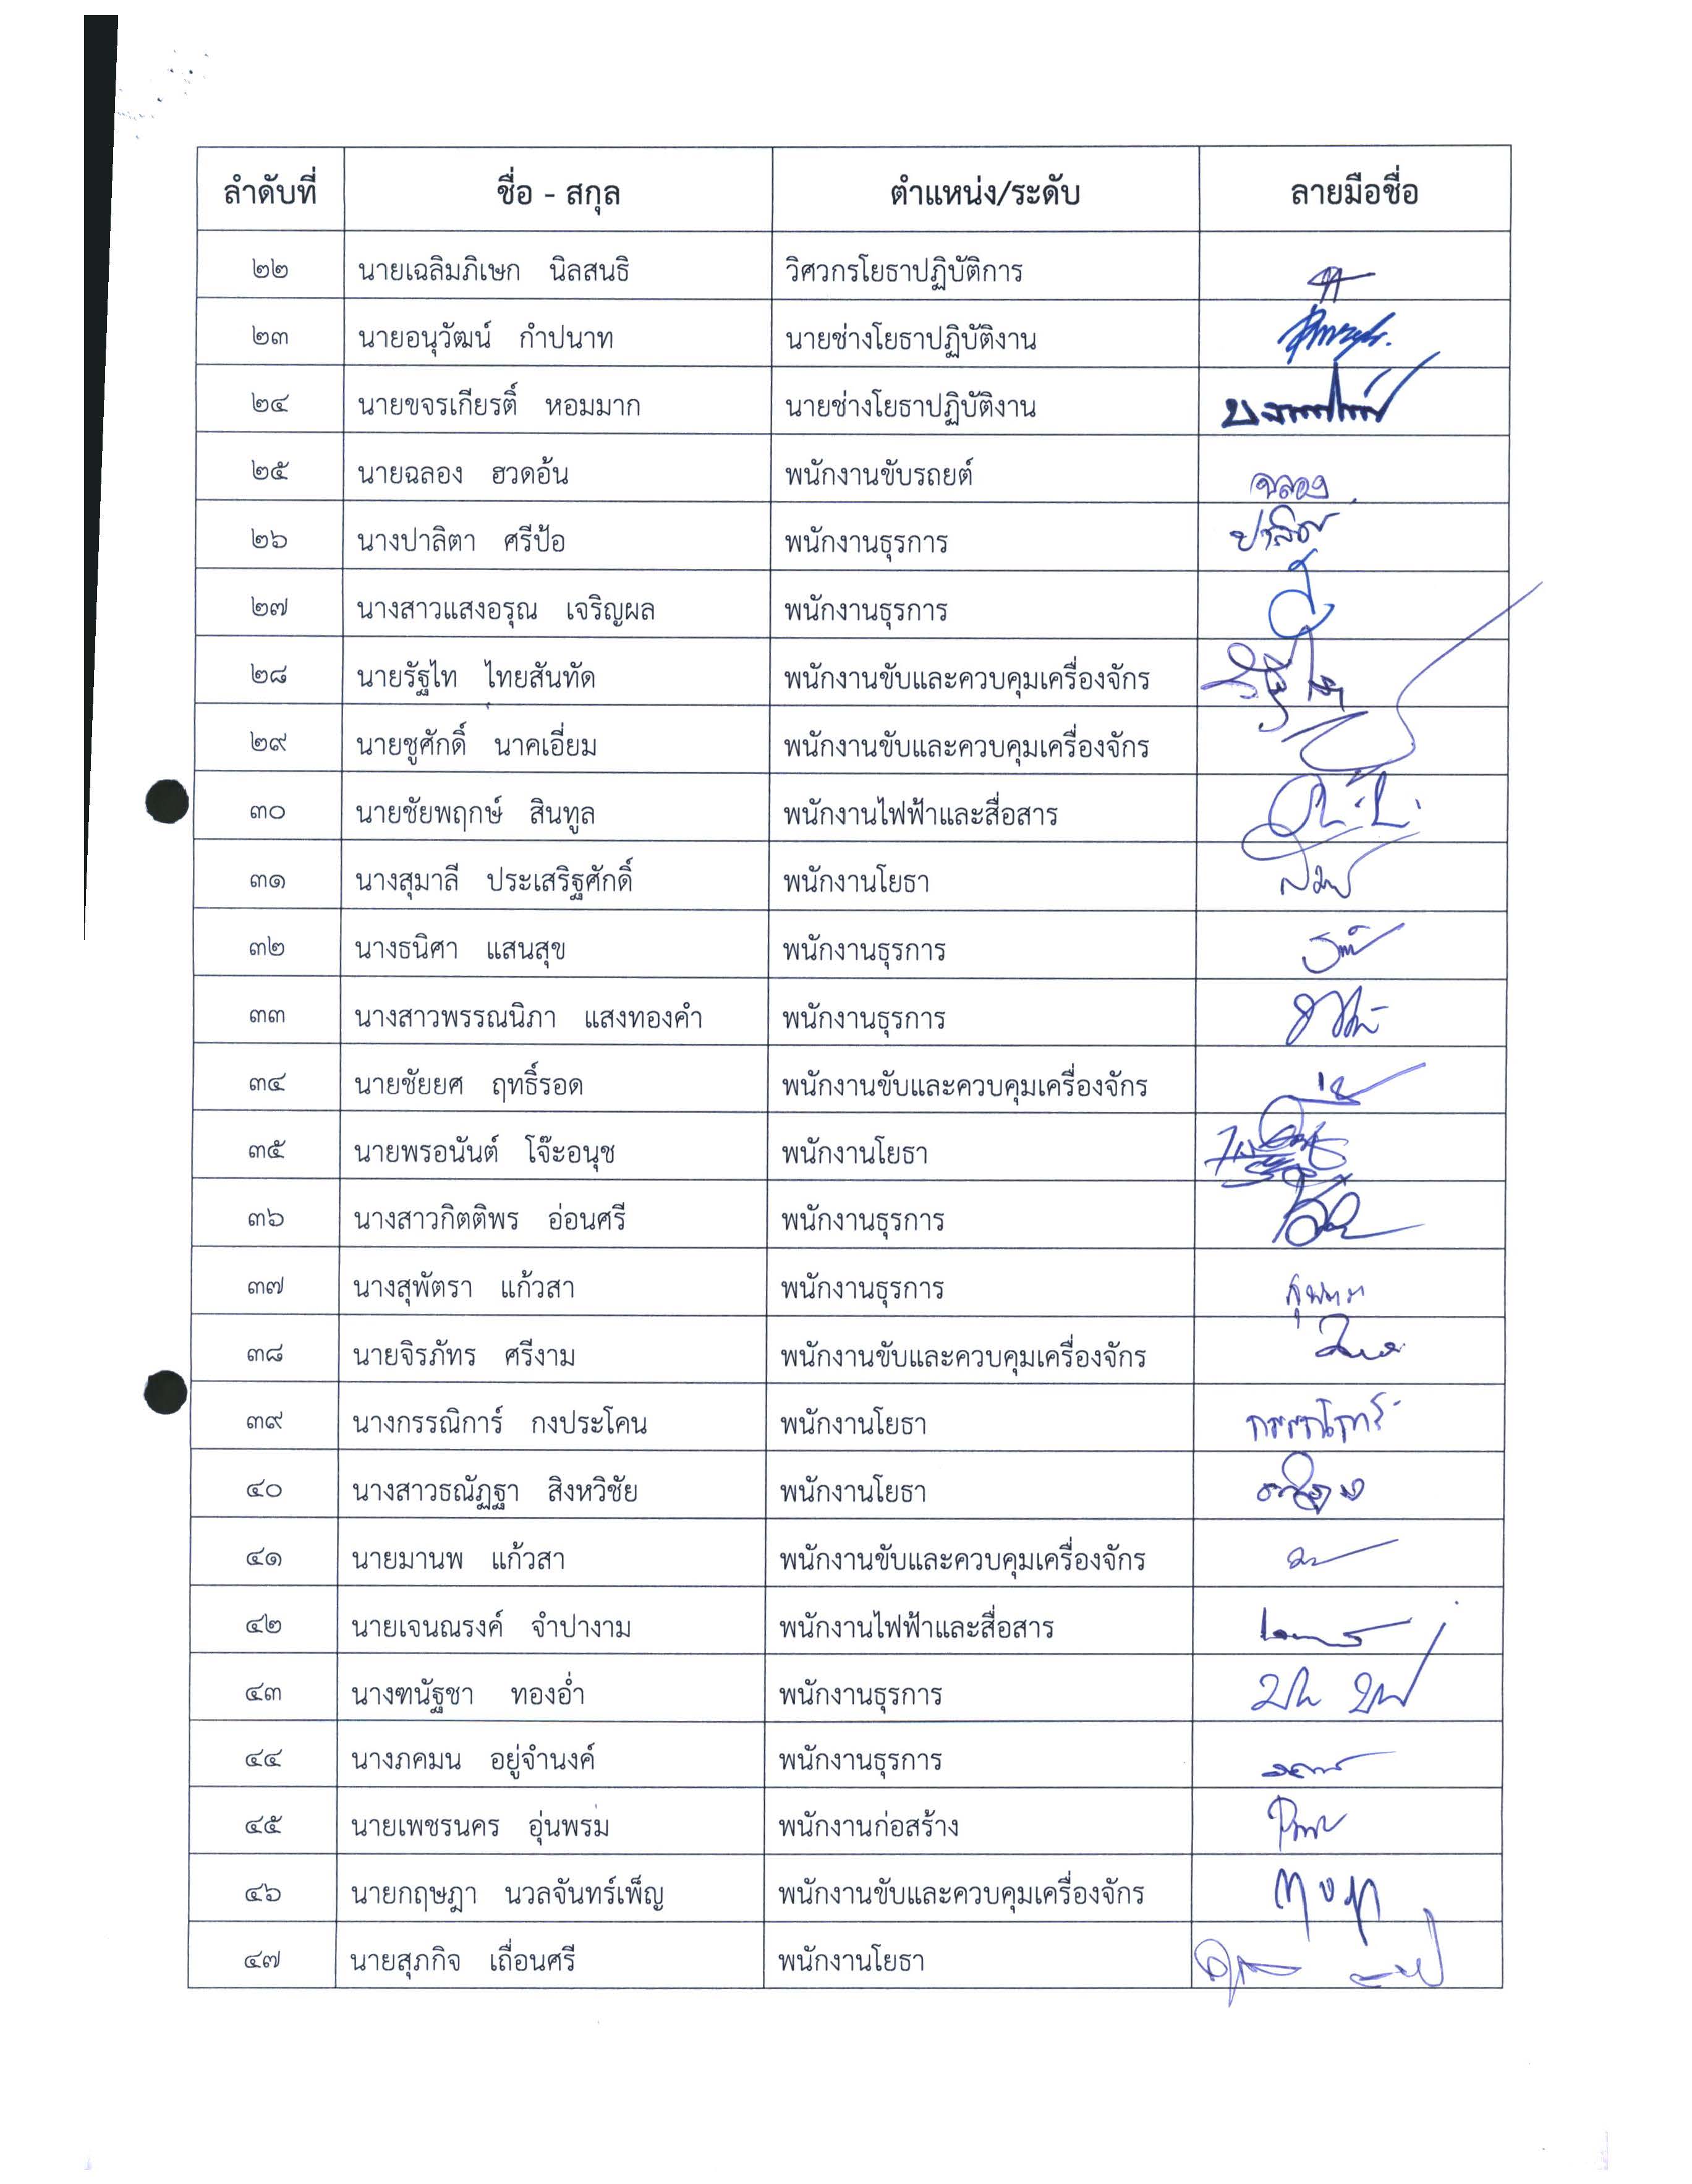 ลำดับที่ ชื่อ - สกุล ตำแหน่ง/ระดับ ลายมือชื่อ
๒๒ นายเฉลิมภิเษก นิลสนธิ วิศวกรโยธาปฏิบัติการ
๒๓ นายอนุวัฒน์ กำปนาท นายช่างโยธาปฏิบัติงาน
๒๔ นายขจรเกียรติ์ หอมมาก นายช่างโยธาปฏิบัติงาน
๒๕ นายฉลอง ฮวดอ้น พนักงานขับรถยต์ ฉลอง
๒๖ นางปาลิตา ศรีป้อ พนักงานธุรการ ปาลิตา
๒๗ นางสาวแสงอรุณ เจริญผล พนักงานธุรการ
๒๘ นายรัฐไท ไทยสันทัด พนักงานขับและควบคุมเครื่องจักร
๒๙ นายชูศักดิ์ นาคเอี่ยม พนักงานขับและควบคุมเครื่องจักร
๓๐ นายชัยพฤกษ์ สินทูล พนักงานไฟฟ้าและสื่อสาร
๓๑ นางสุมาลี ประเสริฐศักดิ์ พนักงานโยธา
๓๒ นางธนิศา แสนสุข พนักงานธุรการ
๓๓ นางสาวพรรณนิภา แสงทองคำ พนักงานธุรการ
๓๔ นายชัยยศ ฤทธิ์รอด พนักงานขับและควบคุมเครื่องจักร
๓๕ นายพรอนันต์ โจ๊ะอนุช พนักงานโยธา
๓๖ นางสาวกิตติพร อ่อนศรี พนักงานธุรการ
๓๗ นางสุพัตรา แก้วสา พนักงานธุรการ
๓๘ นายจิรภัทร ศรีงาม พนักงานขับและควบคุมเครื่องจักร
๓๙ นางกรรณิการ์ กงประโคน พนักงานโยธา กรรณิการ์
๔๐ นางสาวธณัฏฐา สิงหวิชัย พนักงานโยธา
๔๑ นายมานพ แก้วสา พนักงานขับและควบคุมเครื่องจักร
๔๒ นายเจนณรงค์ จำปางาม พนักงานไฟฟ้าและสื่อสาร
๔๓ นางฑนัฐชา ทองอ่ำ พนักงานธุรการ
๔๔ นางภคมน อยู่จำนงค์ พนักงานธุรการ
๔๕ นายเพชรนคร อุ่นพรม พนักงานก่อสร้าง
๔๖ นายกฤษฎา นวลจันทร์เพ็ญ พนักงานขับและควบคุมเครื่องจักร
๔๗ นายสุภกิจ เถื่อนศรี พนักงานโยธา